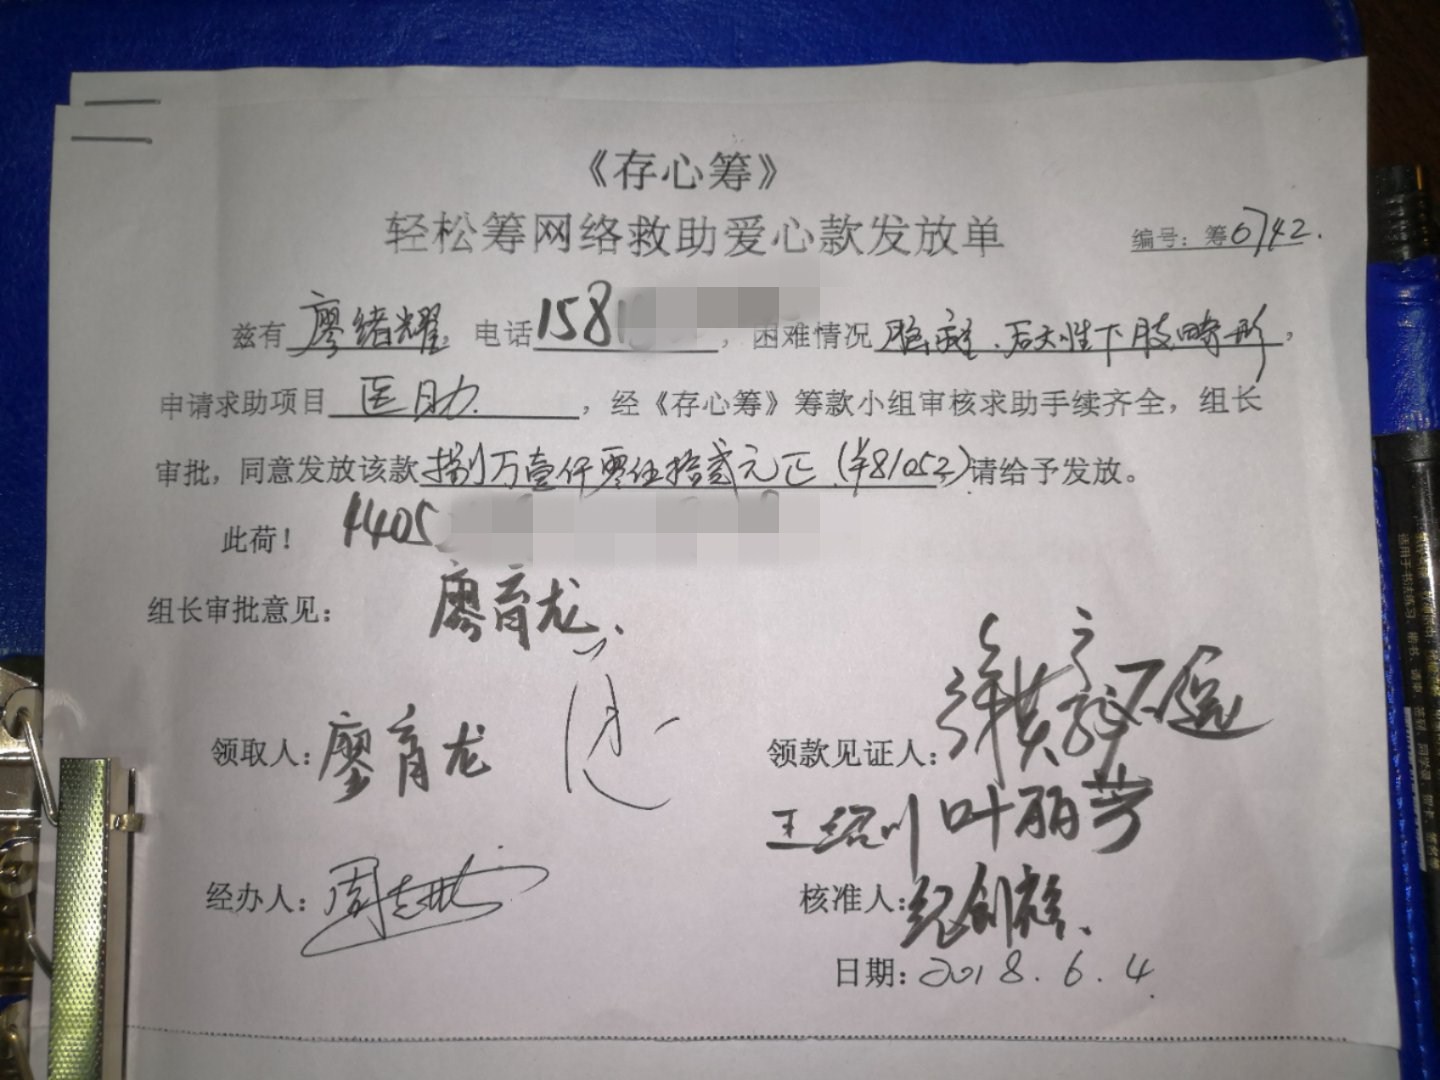 《存心筹》
轻松筹网络救助爱心款发放单
编号：筹0742.
兹有廖绪耀，电话158，困难情况脑瘫、后天性下肢畸形，
申请求助项目医助，经《存心筹》筹款小组审核求助手续齐全，组长
审批，同意发放该款捌万壹仟零伍拾贰元正(¥81052)请给予发放。
此荷！ 4405
组长审批意见： 廖育龙
领取人：廖育龙
领款见证人：
王绍川 叶丽芳
经办人：周
核准人：纪创
日期：2018.6.4